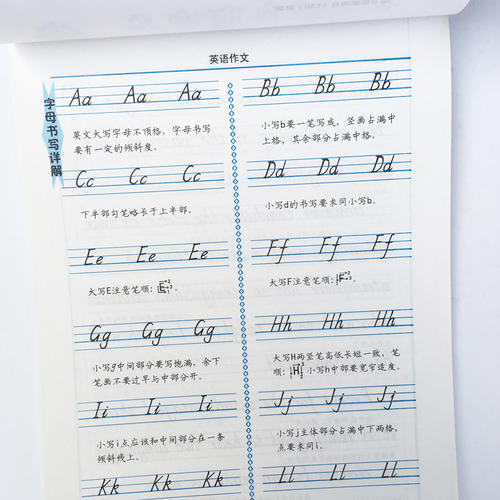 英语作文
字母书写详解
Aa Aa Aa
英文大写字母不顶格，字母书写
要有一定的倾斜度。
Cc Cc Cc
下半部勾笔略长于上半部。
Ee Ee Ee
大写E注意笔顺：
Gg Gg Gg
小写g中间部分要写饱满，余下
笔画不要过早与中部分开。
Ii Ii Ii
小写i,点应该和中间部分在一条
倾斜线上。
Kk Kk Kk
Bb Bb Bb
小写b要一笔写成，竖画占满中
上格，其余部分占满中格。
Dd Dd Dd
小写d的书写要求同小写b。
Ff Ff Ff
大写F注意笔顺：
Hh Hh Hh
大写H两竖笔高低长短一致，笔
顺： 小写h中部要宽窄适度。
Jj Jj Jj
小写j主体部分占满中下两格，
点要求同i。
Ll Ll Ll